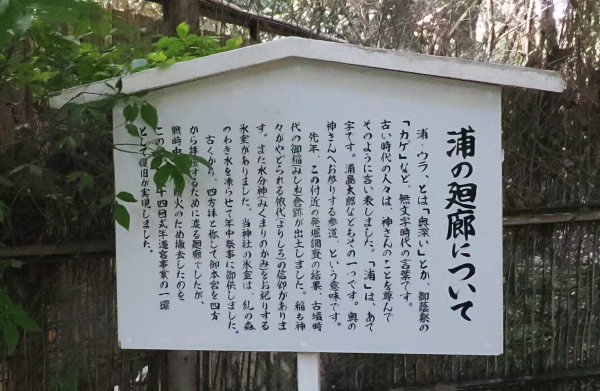 浦の廻廊について
浦・ウラ、とは「奥深い」とか、御蔭祭の
「カゲ」など、無文字時代の言葉です。
古い時代の人々は、神さんのことを尊んで
そのように言い表しました。「浦」は、あて
字です。浦島太郎などもその一つです。奥の
神さんへお参りする参道、という意味です。
先年、この付近の発掘調査の結果、古墳時
代の御稲(みしね)倉跡が出土しました。稲も神
々がやどられる依代(よりしろ)の信仰がありま
す。また水分神(みくまりのかみ)をお祀りする
氷室がありました。当神社の氷室は、糺の森
のわき水を凍らせて年中祭事に御供しました。
古くから、四方拝と称して御本宮を四方
から拝
するために渡る廻廊でしたが、
戦時中
防火のため撤去したのを
この
十四回式年遷宮事業の一環
として復旧が実現しました。